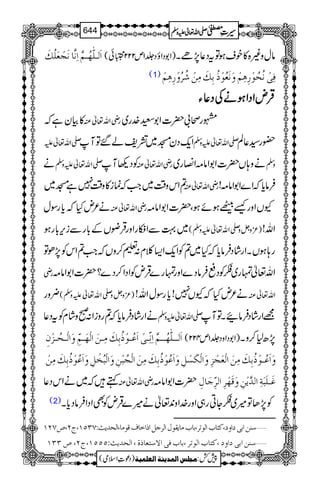 644 سیرت مصطفیٰ صلی اللہ تعالیٰ علیہ وسلم
مال وغیرہ کا خوف ہو تو یہ دعا پڑھے۔ (ابوداؤد جلد اص ۲۲۲ مجتبائی) اَللّٰھُمَّ اِنَّا نَجْعَلُکَ
فِیْ نُحُوْرِھِمْ وَنَعُوْذُ بِکَ مِنْ شُرُوْرِھِمْ (1)
قرض ادا ہونے کی دعاء
مشہور صحابی حضرت ابوسعید خدری رضی اللہ تعالیٰ عنہ کا بیان ہے کہ
حضور سید عالم صلی اللہ تعالیٰ علیہ وسلم ایک دن مسجد میں تشریف لے گئے تو آپ صلی اللہ تعالیٰ علیہ
وسلم نے وہاں حضرت ابوامامہ انصاری رضی اللہ تعالیٰ عنہ کو دیکھا آپ صلی اللہ تعالیٰ علیہ وسلم نے
فرمایا کہ اے ابوامامہ! رضی اللہ تعالیٰ عنہ تم اس وقت میں جب کہ نماز کا وقت نہیں ہے مسجد میں
کیوں اور کیسے بیٹھے ہوئے ہو، حضرت ابوامامہ رضی اللہ تعالیٰ عنہ نے عرض کیا کہ یارسول
اللہ! (عزوجل و صلی اللہ تعالیٰ علیہ وسلم) میں بہت سے افکار اور قرضوں کے بار سے زیر بار ہو
رہا ہوں۔ ارشاد فرمایا کہ کیا میں تم کو ایک ایسا کلام نہ تعلیم کروں کہ جب تم اس کو پڑھو تو
اللہ تعالیٰ تمہاری فکر کو دفع فرما دے اور تمہارے قرض کو ادا کر دے؟ حضرت ابوامامہ رضی
اللہ تعالیٰ عنہ نے عرض کیا کہ کیوں نہیں! یارسول اللہ! (عزوجل و صلی اللہ تعالیٰ علیہ وسلم) ضرور
مجھے ارشاد فرمایئے۔ تو آپ صلی اللہ تعالیٰ علیہ وسلم نے ارشاد فرمایا کہ تم روزانہ صبح و شام کو یہ دعا
پڑھ لیا کرو۔ (ابوداؤد جلد اص ۲۲۴) اَللّٰھُمَّ اِنِّیْ اَعُوْذُبِکَ مِنَ الْھَمِّ وَالْحُزْنِ
وَاَعُوْذُبِکَ مِنَ الْعَجْزِ وَالْکَسَلِ وَاَعُوْذُبِکَ مِنَ الْجُبْنِ وَالْبُخْلِ وَاَعُوْذُبِکَ مِنْ
غَلَبَۃِ الدَّیْنِ وَقَھْرِ الرِّجَالِ حضرت ابوامامہ رضی اللہ تعالیٰ عنہ کہتے ہیں کہ میں نے اس دعا
کو پڑھا تو میری فکر جاتی رہی اور خداوند تعالیٰ نے میرے قرض کو بھی ادا فرما دیا۔ (2)
سنن ابی داود، کتاب الوتر، باب مایقول الرجل اذاخاف قوما، الحدیث:۱۵۳۷، ج۲، ص۱۲۷
سنن ابی داود، کتاب الوتر، باب فی الاستعاذۃ، الحدیث:۱۵۵۵، ج۲، ص ۱۳۳
پیش کش: مجلس المدینۃ العلمیۃ (دعوت اسلامی)